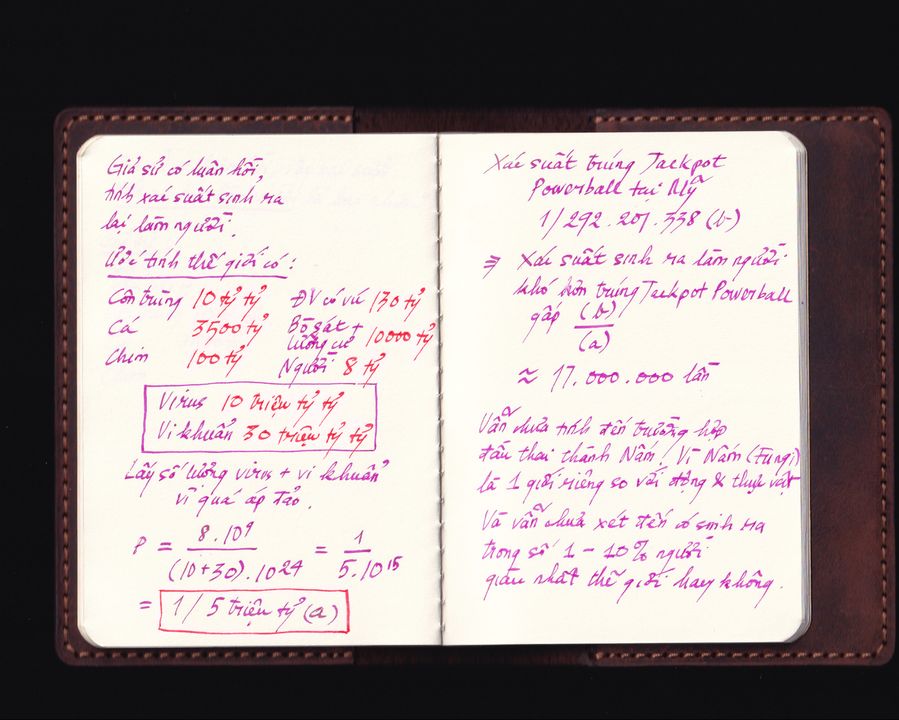 Giả sử có luân hồi,
tính xác suất sinh ra
lại làm người.
Ước tính thế giới có:
Côn trùng 10 tỷ tỷ ĐV có vú 130 tỷ
Cá 3500 tỷ Bò sát + lưỡng cư 10000 tỷ
Chim 100 tỷ Người 8 tỷ
Virus 10 triệu tỷ tỷ
Vi khuẩn 30 triệu tỷ tỷ
Lấy số lượng virus + vi khuẩn
vì quá áp đảo.
P = 8.10⁹ / (10+30).10²⁴ = 1 / 5.10¹⁵
= 1/5 triệu tỷ (a)
Xác suất trúng Jackpot
Powerball tại Mỹ
1/292.201.338 (b)
⇒ Xác suất sinh ra làm người
khó hơn trúng Jackpot Powerball
gấp (b)/(a)
≈ 17.000.000 lần
Vẫn chưa tính đến trường hợp
đầu thai thành Nấm, Vì Nấm (Fungi)
là 1 giới riêng so với động & thực vật
Và vẫn chưa xét đến có sinh ra
trong số 1 - 10% người
giàu nhất thế giới hay không.